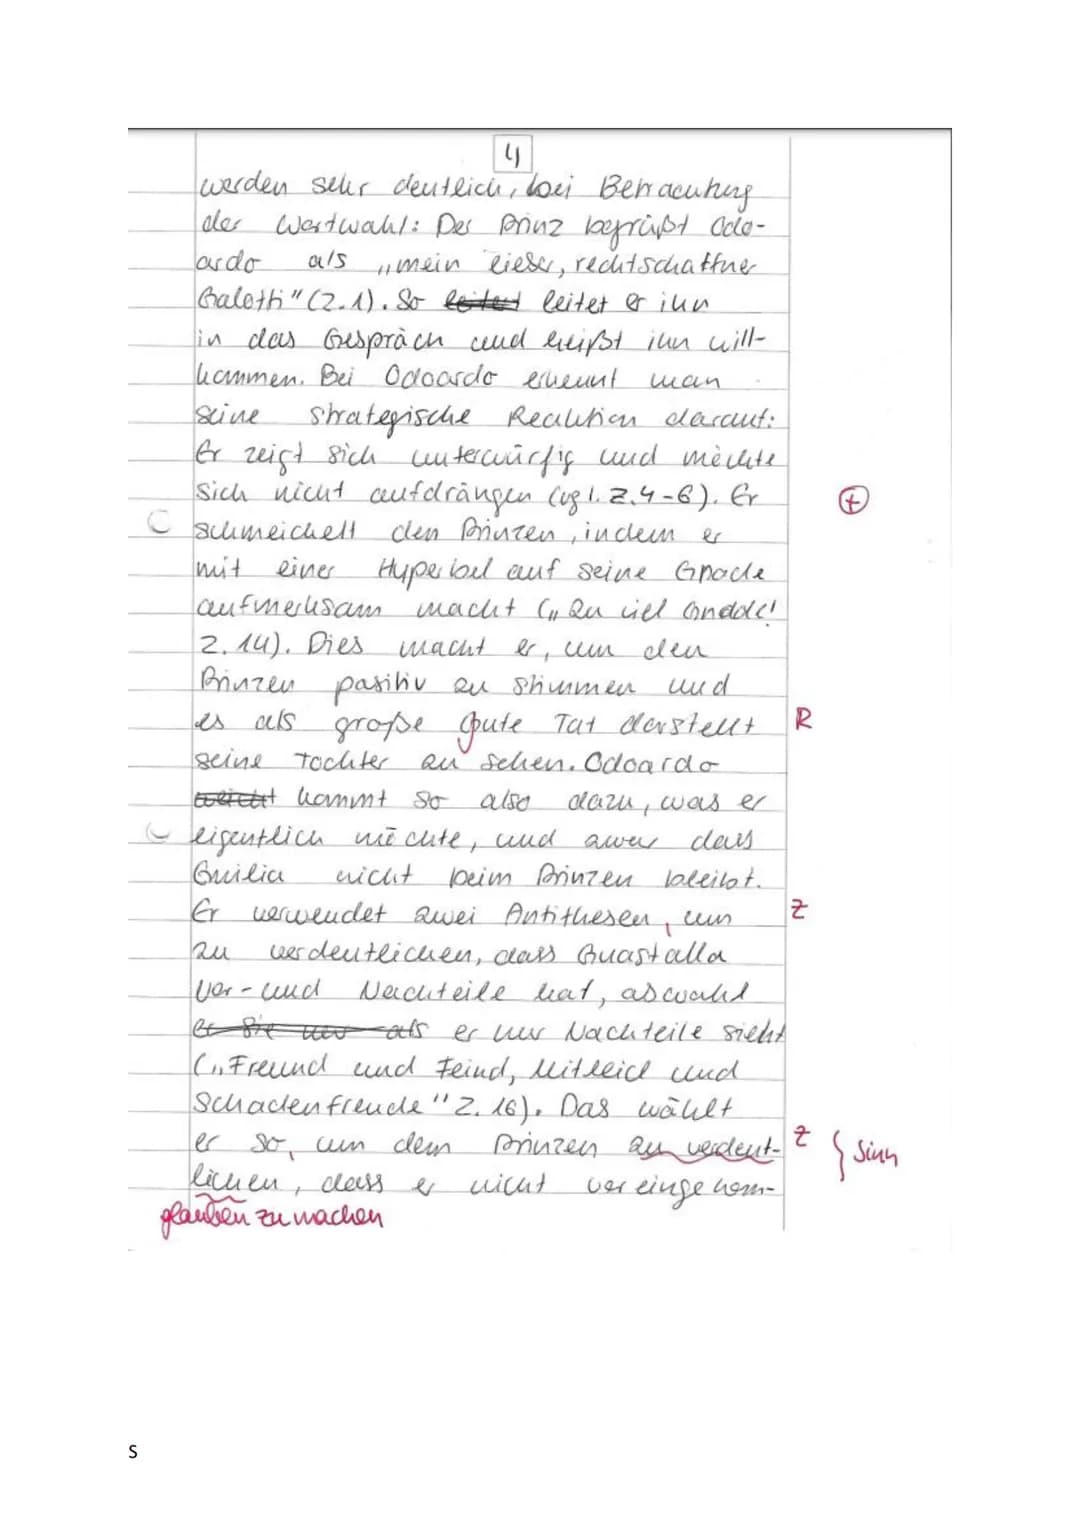 4
werden sehr deutlich, bei Betrachtung
der Wortwahl: Der Prinz begrüßt Odo-
ardo als „mein lieber, rechtschaffner
Galotti" (Z.1). So leitet leitet er ihn
in das Gespräch und heißt ihn will-
kommen. Bei Odoardo erkennt man
seine strategische Reaktion darauf:
Er zeigt sich unterwürfig und möchte
sich nicht aufdrängen (vgl. Z.4-6). Er
schmeichelt den Prinzen, indem er
mit einer Hyperbel auf seine Gnade
aufmerksam macht („Zu viel Gnade!
Z.14). Dies macht er, um den
Prinzen positiv zu stimmen und
es als große gute Tat darstellt R
seine Tochter zu sehen. Odoardo
kommt so also dazu, was er
eigentlich möchte, und zwar dass
Emilia nicht beim Prinzen bleibt.
Er verwendet zwei Antithesen, um Z
zu verdeutlichen, dass Guastalla
Vor- und Nachteile hat, obwohl
er Sie nur als er nur Nachteile sieht
(„Freund und Feind, Mitleid und
Schadenfreude" Z.16). Das wählt
er so, um dem Prinzen zu verdeut- Z } Sinn
lichen, dass er nicht voreingenom-
glauben zu machen
S